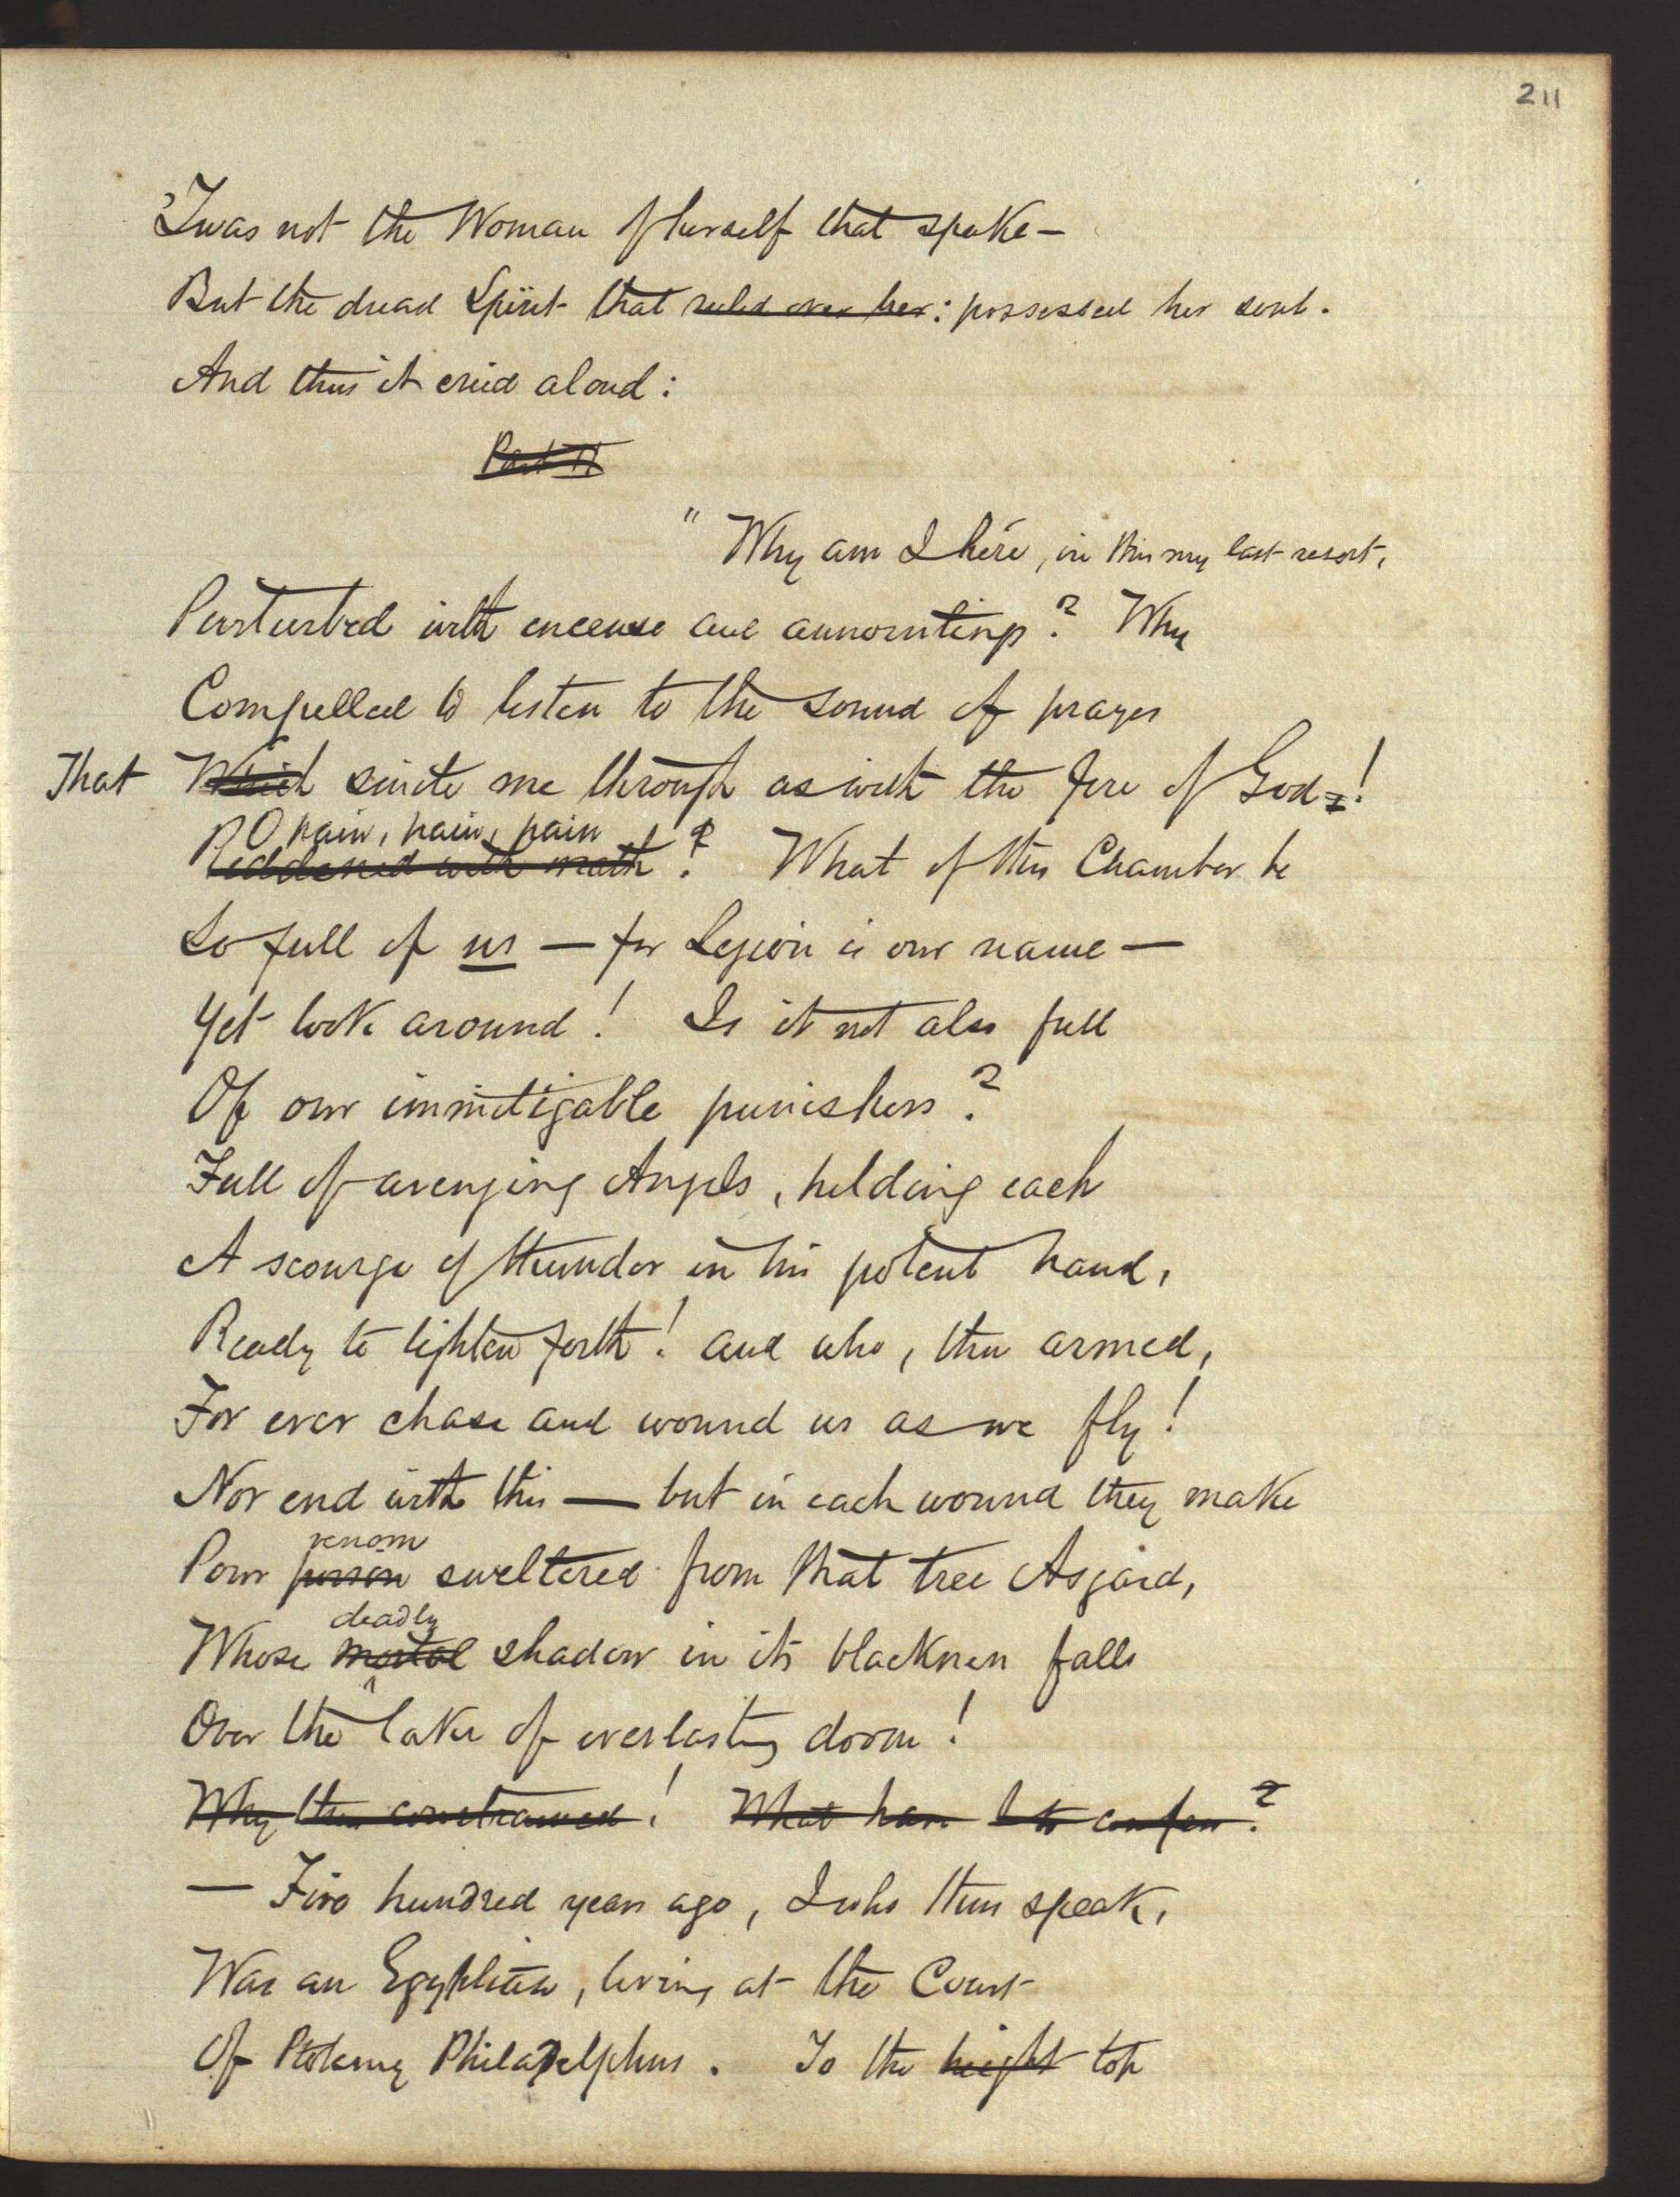 211
'Twas not the Woman of herself that spoke—
But the dread Spirit that ruled over her: possessed her soul.
And thus it cried aloud:
Part II
" Why am I here, in this my last resort,
Perturbed with incense and annointings? Why
Compelled to listen to the sound of prayer
That Which smite me through as with the fire of God!
O pain, pain, pain
Reddened with wrath? What if this Chamber be
So full of us — for Legion is our name —
Yet look around! Is it not also full
Of our immitigable punishers?
Full of avenging Angels, holding each
A scourge of thunder in his potent hand,
Ready to lighten forth! and who, thus armed,
For ever chase and wound us as we fly!
Nor end with this — but in each wound they make
venom
Pour poison sweltered from that tree Asgard,
deadly
Whose mortal shadow in its blackness falls
Over the lake of everlasting doom!
Why thus constrained! What have I to confess?
— Five hundred years ago, I who thus speak,
Was an Egyptian, living at the Court
Of Ptolemy Philadelphus. To the height top